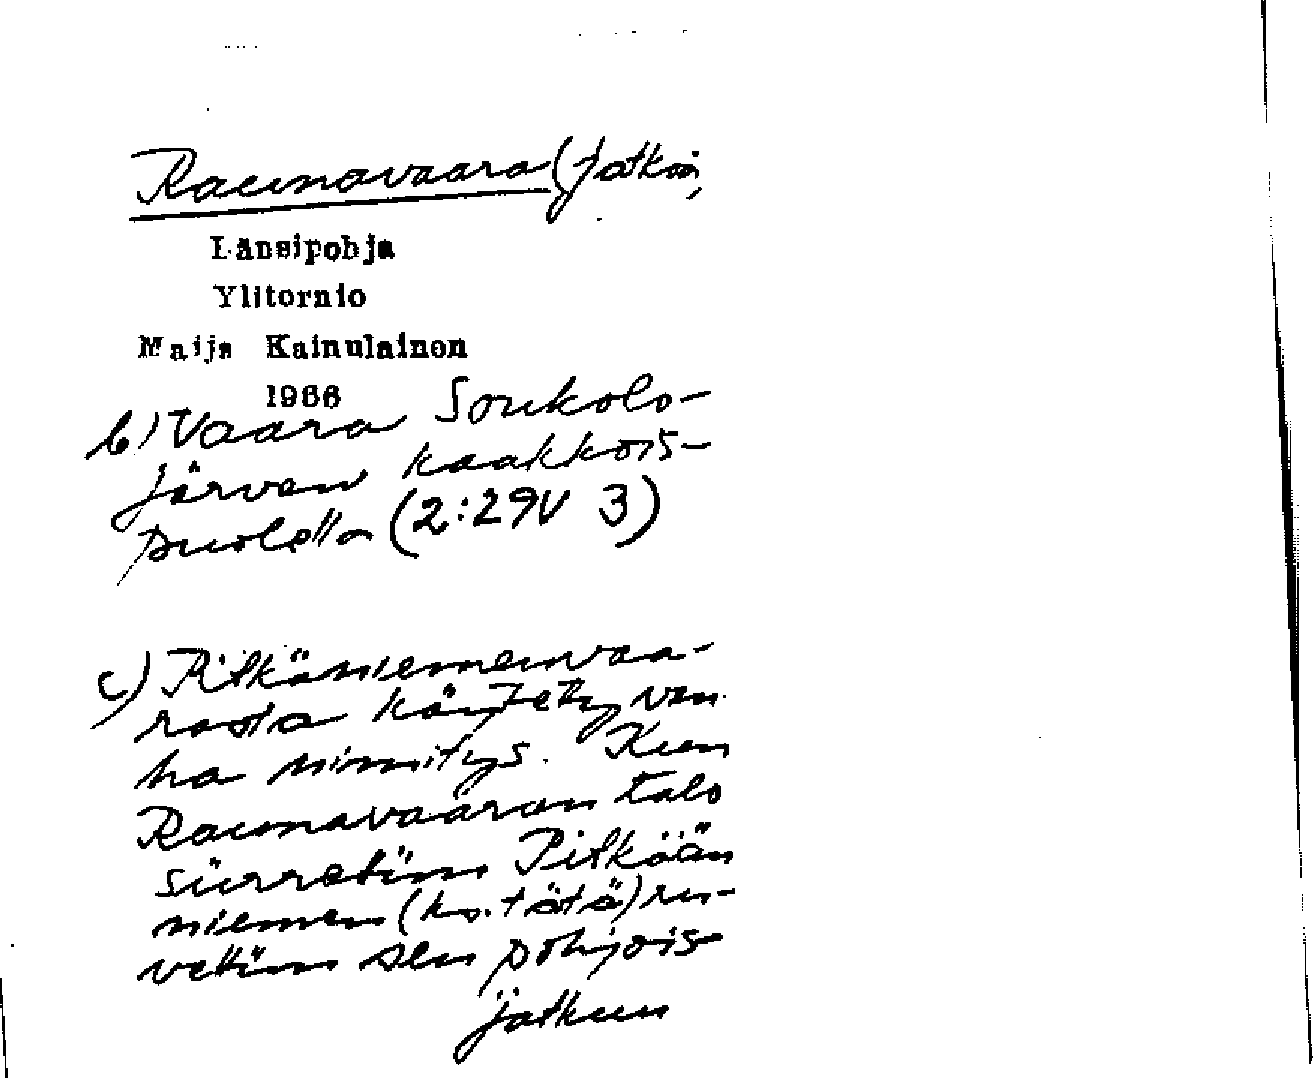 Raunavaara (jatkoa)
Länsipohja
Ylitornio
Maija Kainulainen
1966
b) Vaara Soukolo-
järven kaakkois-
puolella (2:29V 3)
c) Pitkäniemenvaa-
rasta käytetty van-
ha nimitys. Kun
Raunavaaran talo
siirrettiin Pitkään
niemen (ks. tätä) ru-
vettiin sen pohjois-
jatkuu